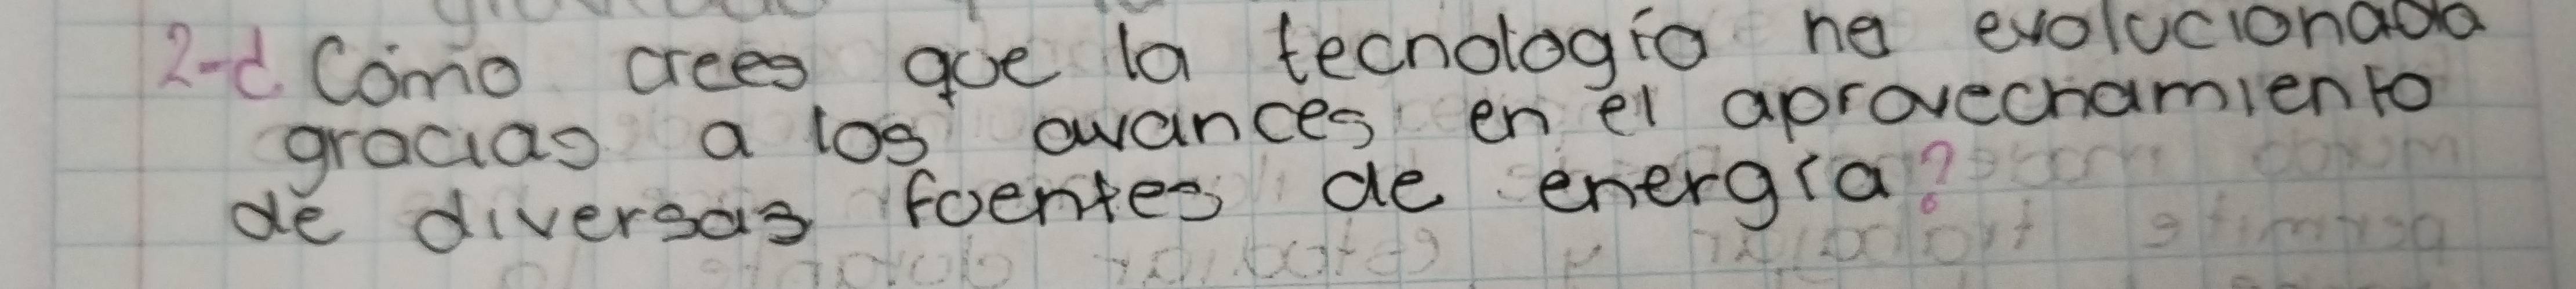 2-¿Cómo crees que la tecnología ha evolucionado
gracias a los avances en el aprovechamiento
de diversas fuentes de energía?